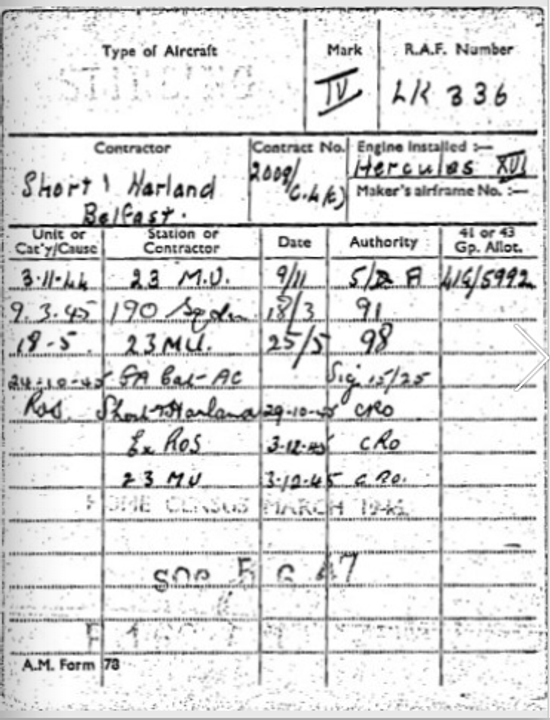 Type of Aircraft Mark R.A.F. Number
STIRLING IV LK 336
Contractor Contract No. Engine installed :—
Short & Harland 2009/ Hercules XVI
Belfast. C.4(c) Maker's airframe No. :—
Unit or Cat'y/Cause Station or Contractor Date Authority 41 or 43 Gp. Allot.
3-11-44 23 M.U. 9/11 41G/5992
9.3.45 190 Sqdn 18/3 91
18-5 23 MU. 25/5 98
24-10-45 Cat-AC Sig 15/25
Ros Short & Harland 29-10-45 CRO
Ex ROS 3-12-45 CRO
23 MU 3-12-45 CRO.
HOME CENSUS MARCH 1946
A.M. Form 78